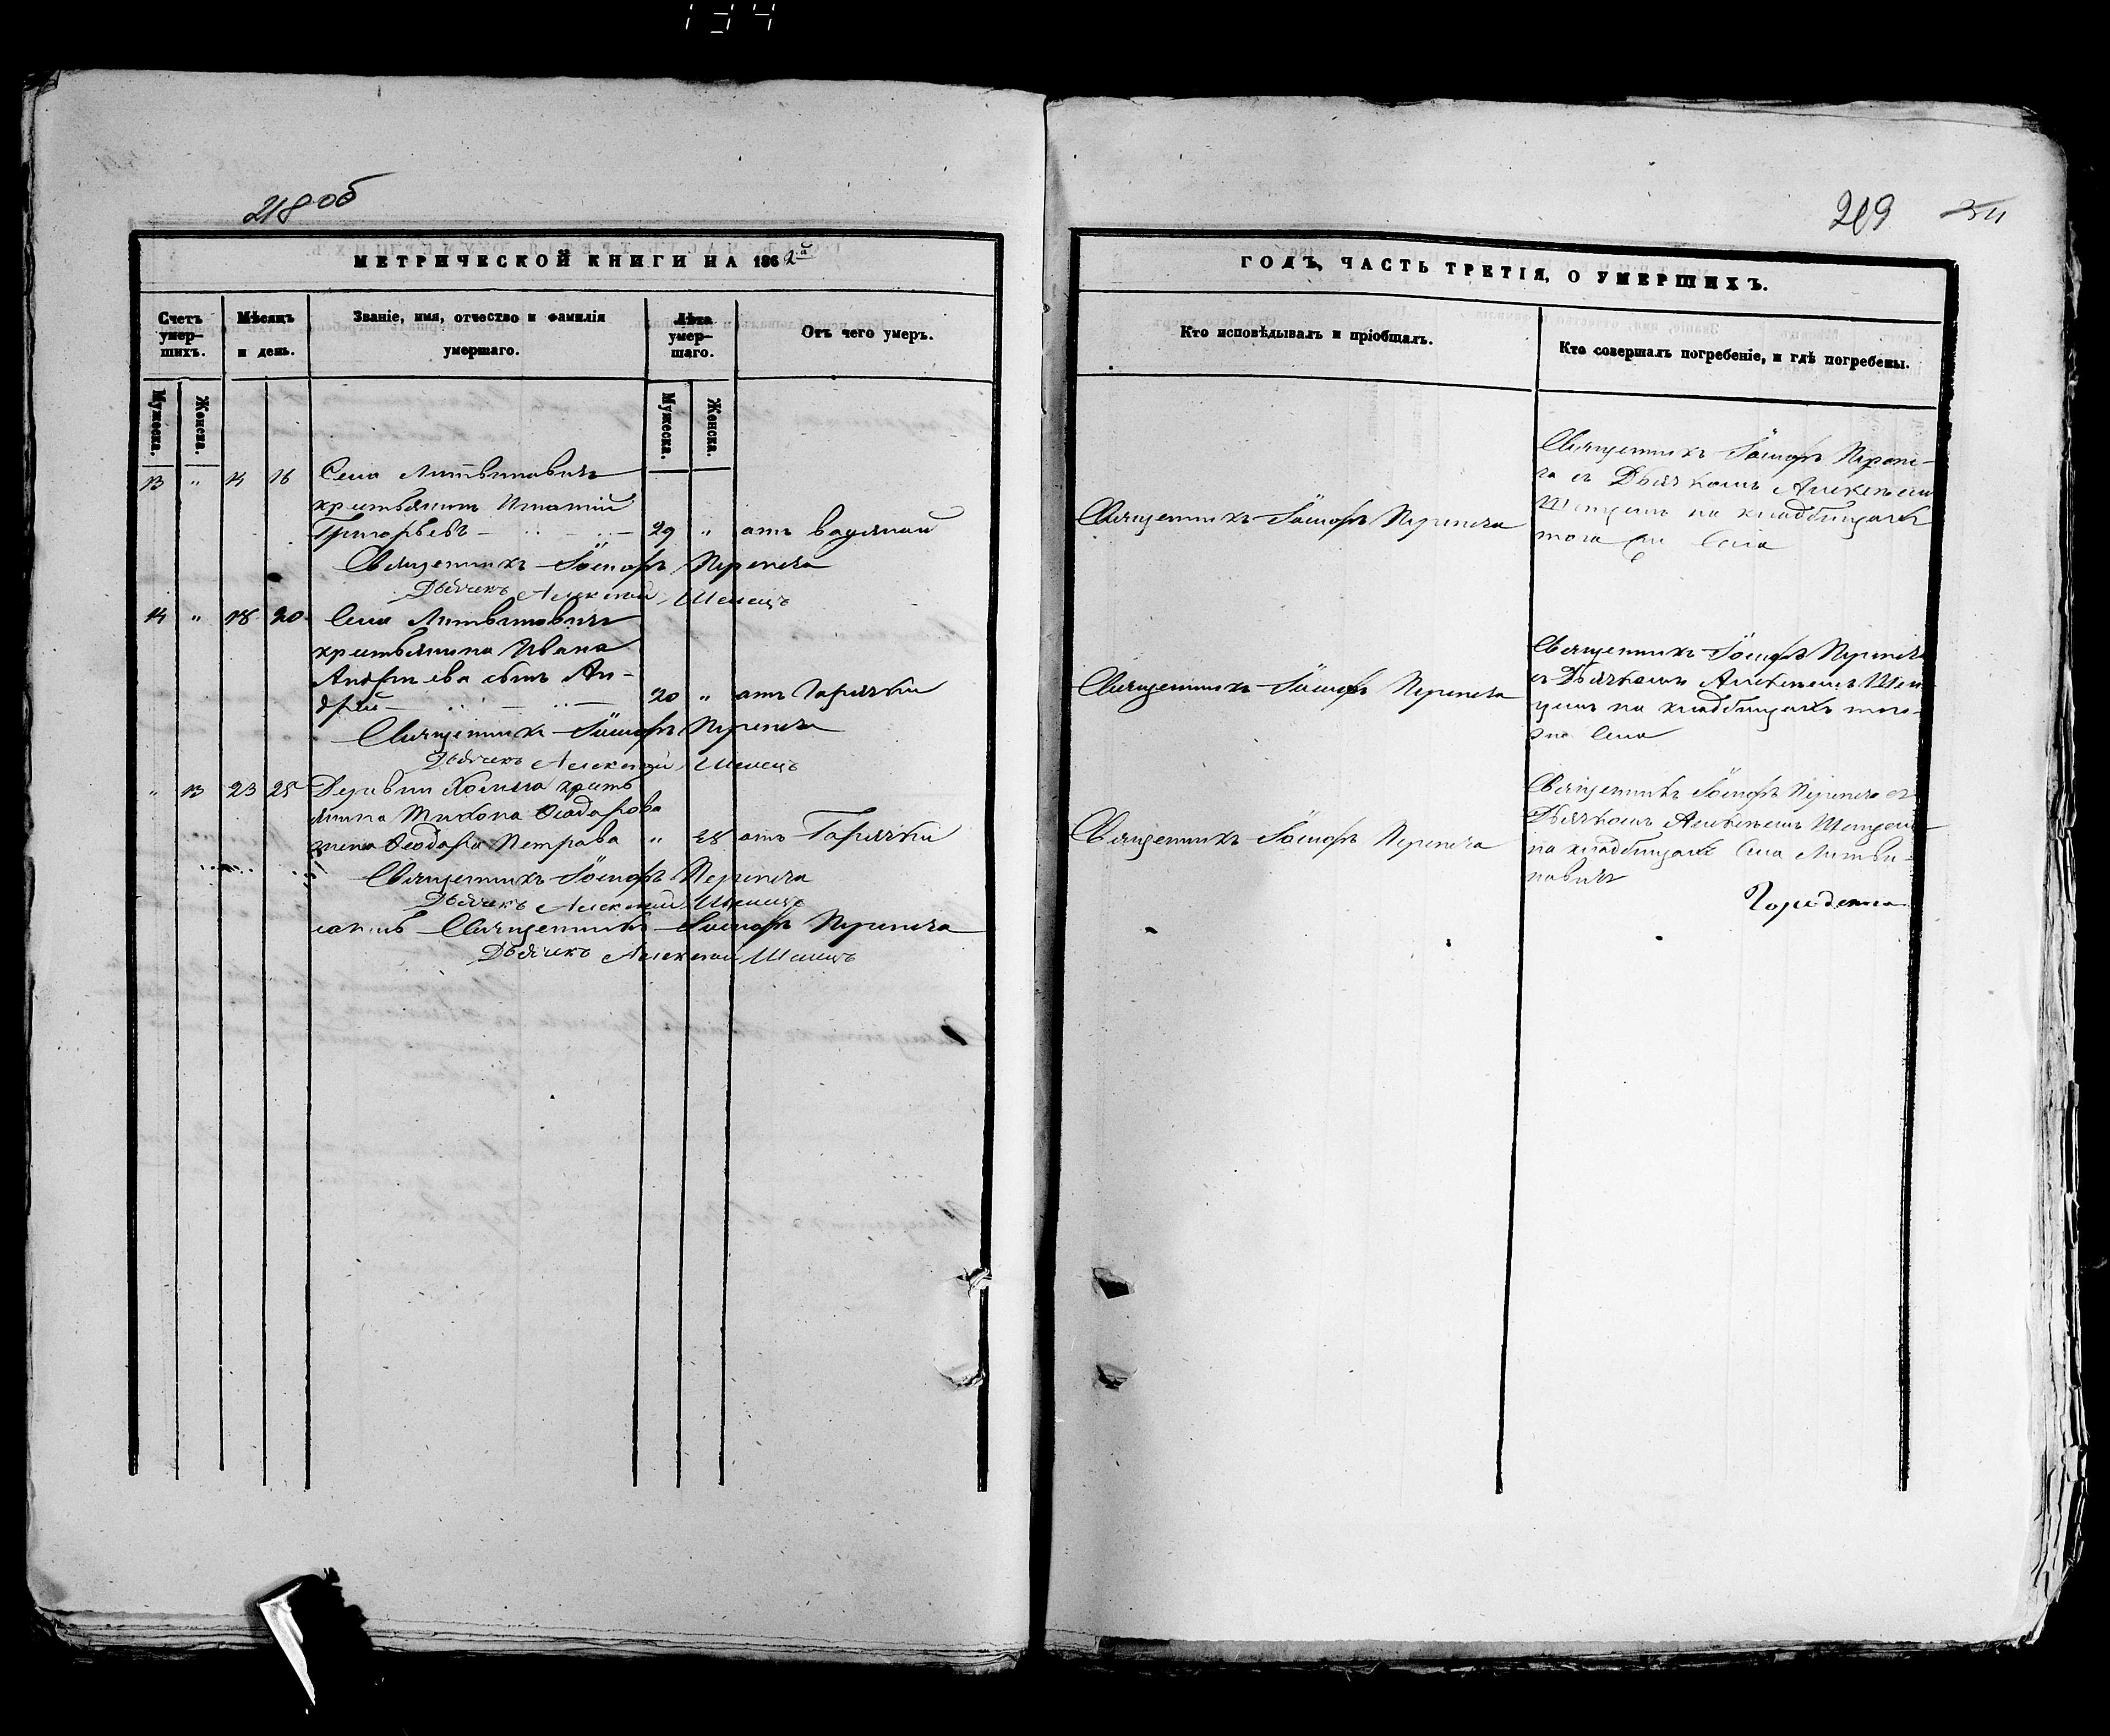 134
218 об
МЕТРИЧЕСКОЙ КНИГИ НА 1862й
Счетъ умер-шихъ.
Мѣсяцъ и день.
Званіе, имя, отчество и фамилія умершаго.
Лѣта умер-шаго.
Отъ чего умеръ.
Мужеска.
Женска.
Мужеска.
Женска.
13 " 14 16 Села Литвиновичъ
крестьянинъ Игнатій
Григорьевъ 29 " отъ водяной
Священникъ Іосифъ Перепеча
Дьячекъ Алексѣй Шепецъ
14 " 18 20 Села Литвиновичъ
крестьянина Ивана
Андреева сынъ Ан-
дрей 20 " отъ Горячки
Священникъ Іосифъ Перепеча
Дьячекъ Алексѣй Шепецъ
" 13 23 25 Деревни Холмеча кресть
янина Тихона Ѳеодорова
жена Ѳеодора Петрова " 38 отъ Горячки
Священникъ Іосифъ Перепеча
Дьячекъ Алексѣй Шепецъ
Священникъ Іосифъ Перепеча
Дьячекъ Алексѣй Шепецъ
219
ГОДЪ, ЧАСТЬ ТРЕТІЯ, О УМЕРШИХЪ.
Кто исповѣдывалъ и пріобщалъ.
Кто совершалъ погребеніе, и гдѣ погребены.
Священникъ Іосифъ Перепеча
Священникъ Іосифъ Перепе-
ча съ Дьячкомъ Алексѣемъ
Шепцемъ на кладбищахъ
того же Села
Священникъ Іосифъ Перепеча
Священникъ Іосифъ Перепеча
съ Дьячкомъ Алексѣемъ Шеп
цемъ на кладбищахъ того-
же Села
Священникъ Іосифъ Перепеча
Священникъ Іосифъ Перепеча съ
Дьячкомъ Алексѣемъ Шепцемъ
на кладбищахъ Села Литви-
новичъ